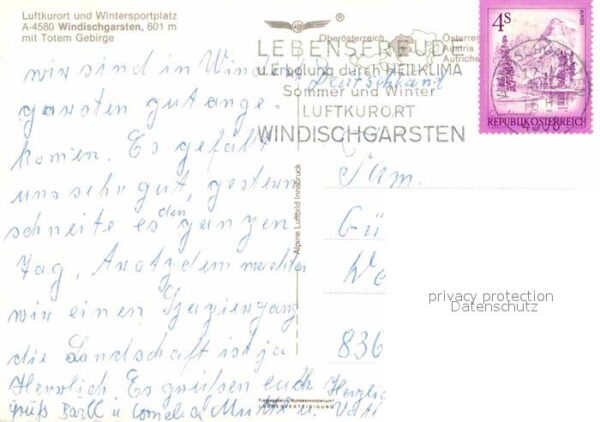 Luftkurort und Wintersportplatz
A-4580 Windischgarsten, 601 m
mit Totem Gebirge
Oberösterreich
Österreich
Austria
Autriche
LEBENSFREUDE
u. Erholung durch HEILKLIMA
Sommer und Winter
LUFTKURORT
WINDISCHGARSTEN
4S
REPUBLIK ÖSTERREICH
Deutschland
wir sind in Windisch
garsten gut ange-
komen. Es gefällt
uns sehr gut, gestern
schneite es den ganzen
Tag, trotzdem machten
wir einen Spaziergang
die Landschaft ist ja
Herrlich. Es grüßen euch Herzlich
Mutti u. Vati
Grüß u Cornelia
Fam.
Gü
We
836
Alpine Luftbild Innsbruck
Freigegeben v. Bundesministerium f.
LANDESVERTEIDIGUNG
privacy protection
Datenschutz